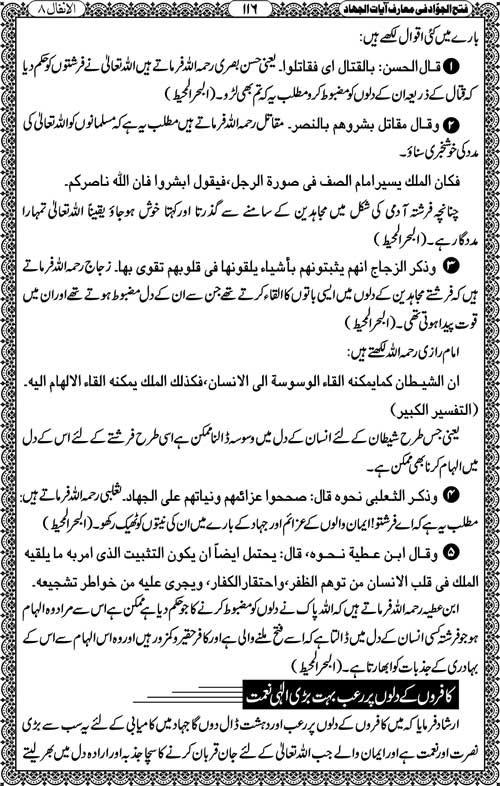 فتح الجوّاد فی معارف آیات الجهاد
۱۱۶
الانفال ۸
بارے میں کئی اقوال لکھے ہیں:
۱ قال الحسن: بالقتال ای فقاتلوا۔ یعنی حسن بصری رحمہ اللہ فرماتے ہیں اللہ تعالیٰ نے فرشتوں کو حکم دیا
کہ قتال کے ذریعہ ان کے دلوں کو مضبوط کرو مطلب یہ کہ تم بھی لڑو۔ (البحر المحیط)
۲ وقال مقاتل بشروهم بالنصر۔ مقاتل رحمہ اللہ فرماتے ہیں مطلب یہ ہے کہ مسلمانوں کو اللہ تعالیٰ کی
مدد کی خوشخبری سناؤ۔
فکان الملك یسیر امام الصف فی صورة الرجل، فیقول ابشروا فان الله ناصرکم۔
چنانچہ فرشتہ آدمی کی شکل میں مجاہدین کے سامنے سے گذرتا اور کہتا خوش ہو جاؤ یقیناً اللہ تعالیٰ تمہارا
مددگار ہے۔ (البحر المحیط)
۳ وذکر الزجاج انهم یثبتونهم بأشیاء یلقونها فی قلوبهم تقوی بها۔ زجاج رحمہ اللہ فرماتے
ہیں کہ فرشتے مجاہدین کے دلوں میں ایسی باتوں کا القاء کرتے تھے جن سے ان کے دل مضبوط ہوتے تھے اور ان میں
قوت پیدا ہوتی تھی۔ (البحر المحیط)
امام رازی رحمہ اللہ لکھتے ہیں:
ان الشیطان کما یمکنه القاء الوسوسة الی الانسان، فکذلك الملك یمکنه القاء الالهام الیه۔
(التفسیر الکبیر)
یعنی جس طرح شیطان کے لئے انسان کے دل میں وسوسہ ڈالنا ممکن ہے اسی طرح فرشتے کے لئے اس کے دل
میں الہام کرنا بھی ممکن ہے۔
۴ وذکر الثعلبی نحوه قال: صححوا عزائمهم ونیاتهم علی الجهاد۔ ثعلبی رحمہ اللہ فرماتے ہیں:
مطلب یہ ہے کہ اے فرشتو! ایمان والوں کے عزائم اور جہاد کے بارے میں ان کی نیتوں کو ٹھیک رکھو۔ (البحر المحیط)
۵ وقال ابن عطیة نحوه، قال: یحتمل ایضاً ان یکون التثبیت الذی امر به ما یلقیه
الملك فی قلب الانسان من توهم الظفر، واحتقار الکفار، ویجری علیه من خواطر تشجیعه۔
ابن عطیہ رحمہ اللہ فرماتے ہیں کہ اللہ پاک نے دلوں کو مضبوط کرنے کا جو حکم دیا ہے ممکن ہے اس سے مراد وہ الہام
ہو جو فرشتہ کسی انسان کے دل میں ڈالتا ہے کہ اسے فتح ملنے والی ہے اور کافر حقیر و کمزور ہیں اور وہ اس الہام سے اس کے
بہادری کے جذبات کو ابھارتا ہے۔ (البحر المحیط)
کافروں کے دلوں پر رعب بہت بڑی الٰہی نعمت
ارشاد فرمایا کہ میں کافروں کے دلوں پر رعب اور دہشت ڈال دوں گا جہاد میں کامیابی کے لئے یہ سب سے بڑی
نصرت اور نعمت ہے اور ایمان والے جب اللہ تعالیٰ کے لئے جان قربان کرنے کا سچا جذبہ اور ارادہ دل میں بھر لیتے